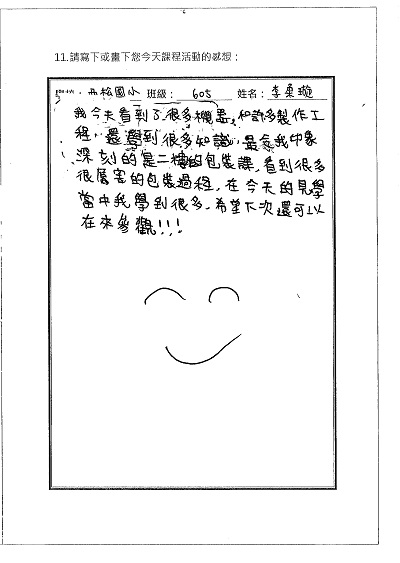 11.請寫下或畫下您今天課程活動的感想：
國小 班級： 605 姓名： 李
我今天看到了很多機器，和許多製作工
程，還學到很多知識，最令我印象
深刻的是二樓的包裝課，看到很多
很厲害的包裝過程，在今天的見學
當中我學到很多，希望下次還可以
在來參觀!!!